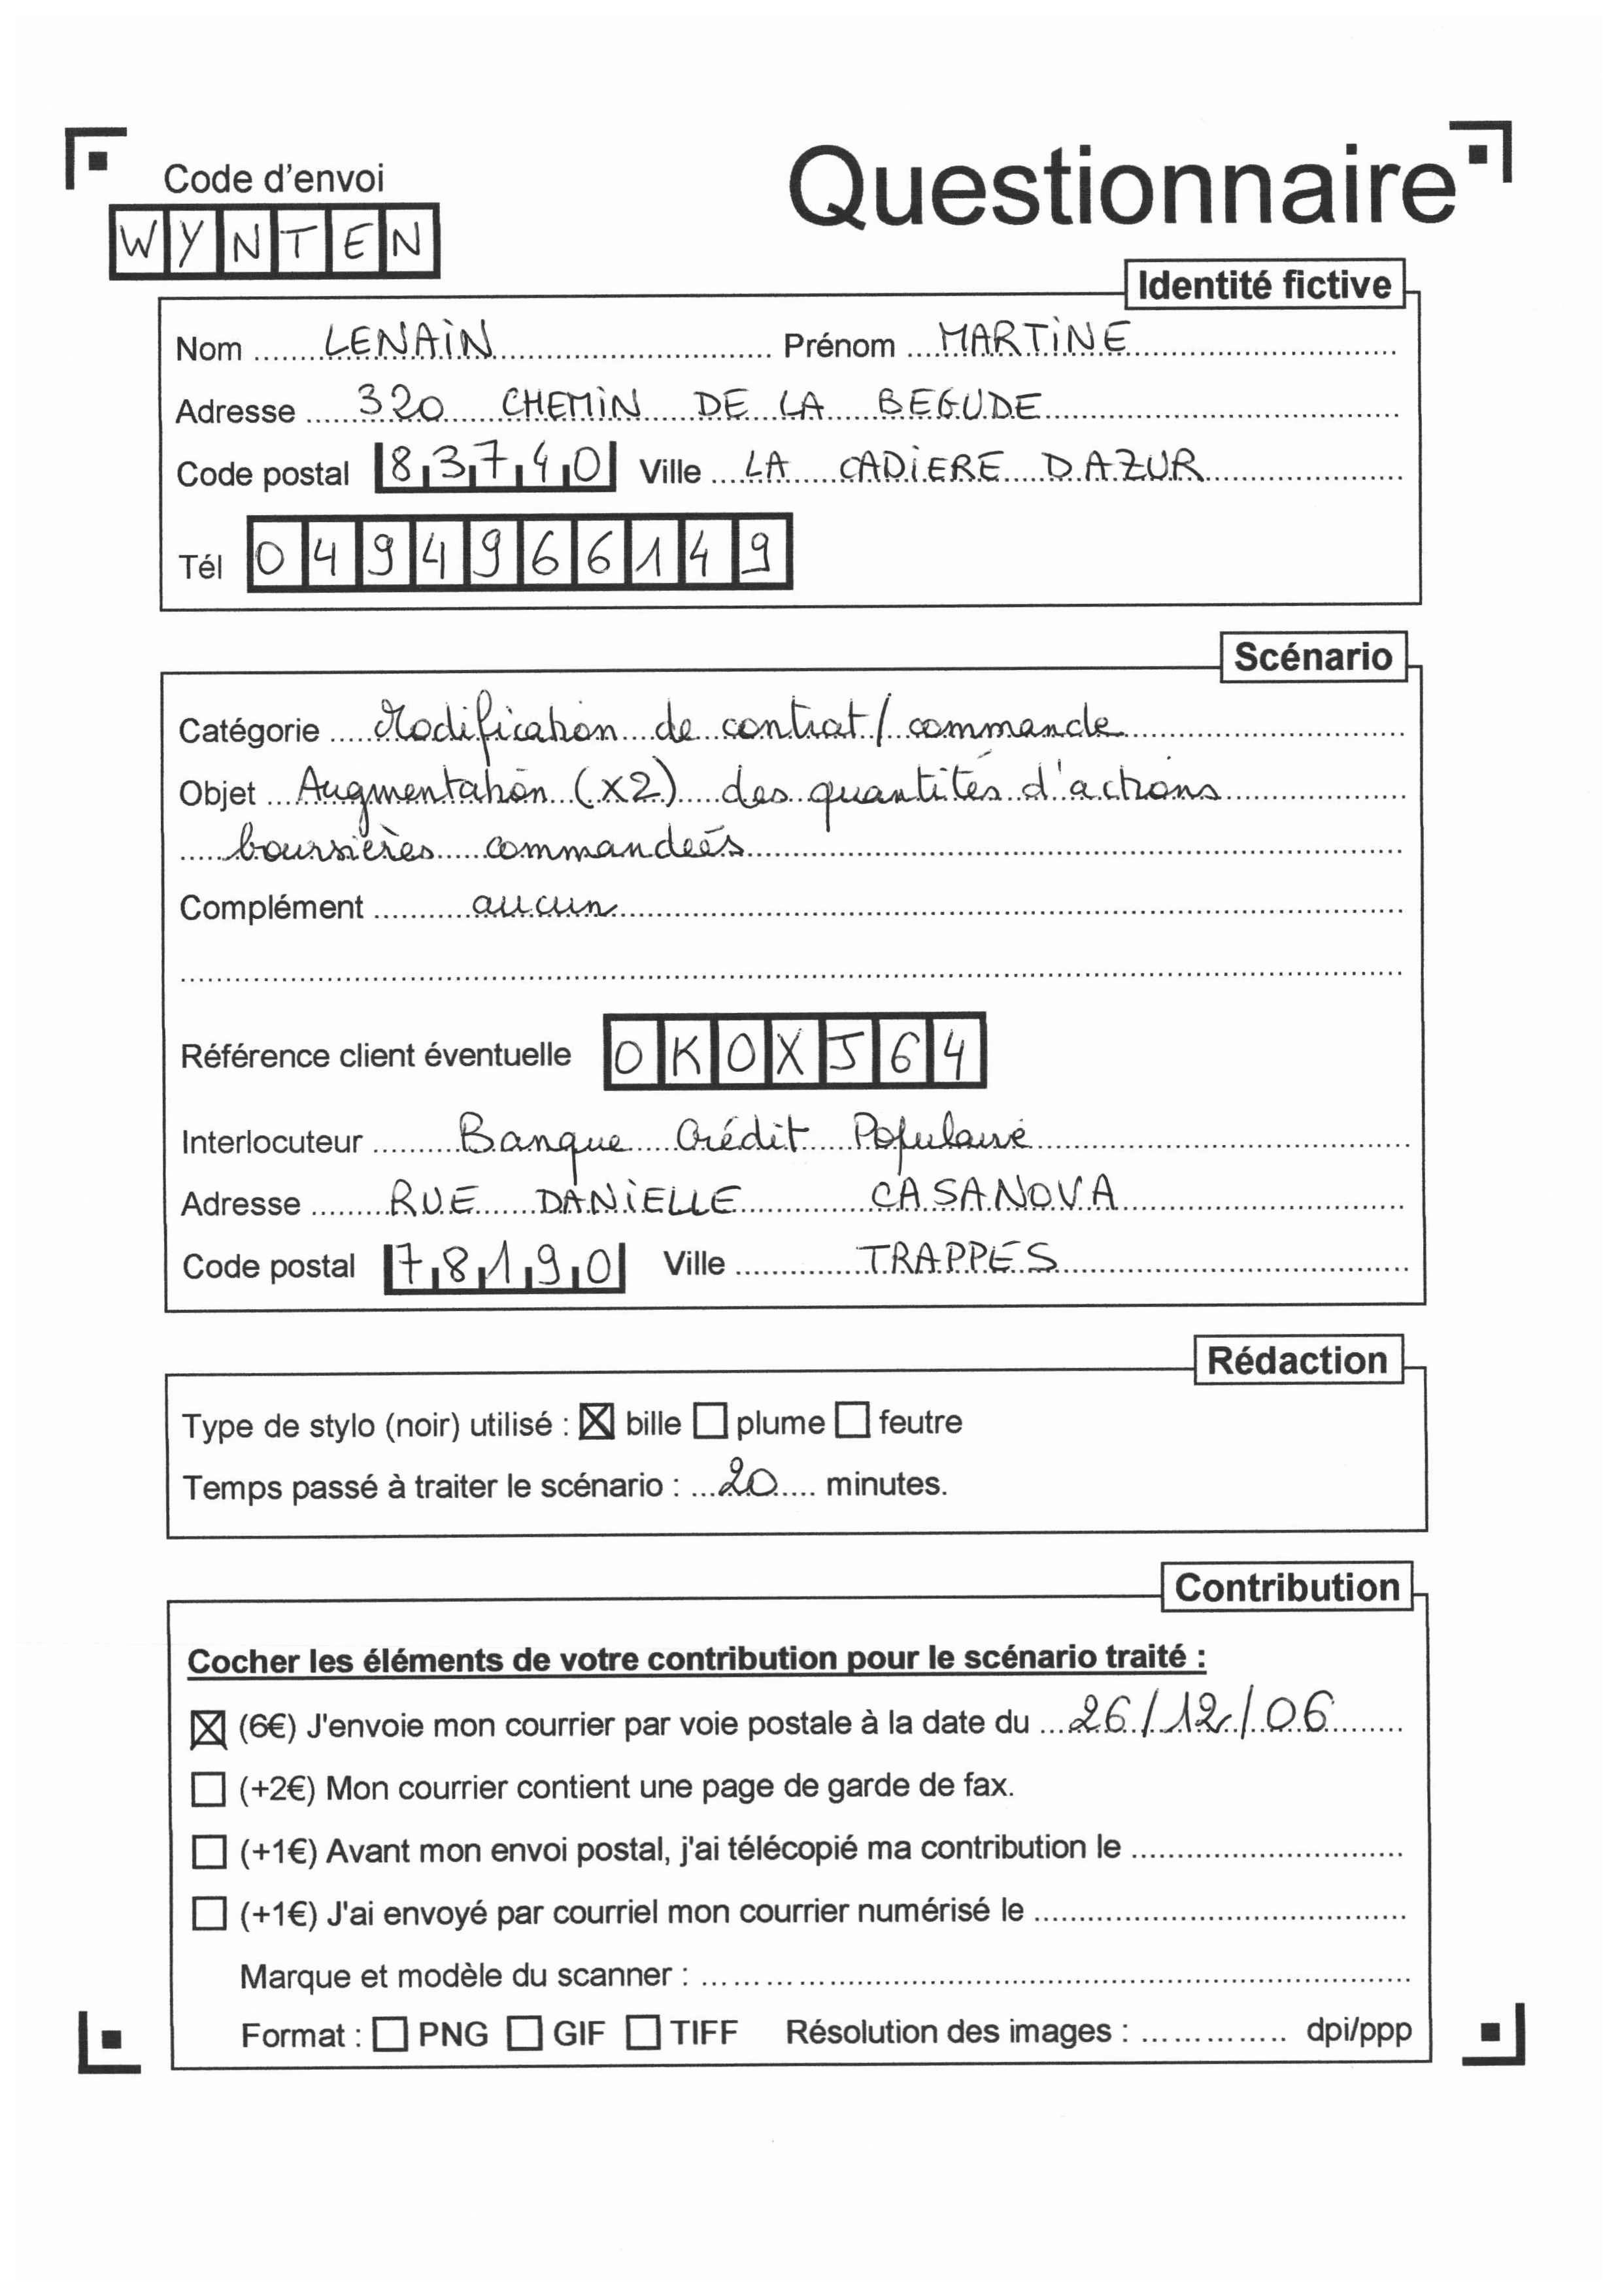 Code d'envoi
Questionnaire
WYNTEN
Identité fictive
Nom LENAIN Prénom MARTINE
Adresse 320 CHEMIN DE LA BEGUDE
Code postal 83740 Ville LA CADIERE D AZUR
Tél 0494966149
Scénario
Catégorie Modification de contrat / commande
Objet Augmentation (x2) des quantités d'actions
boursières commandées
Complément aucun
Référence client éventuelle OKOXJ64
Interlocuteur Banque Crédit Populaire
Adresse RUE DANIELLE CASANOVA
Code postal 78190 Ville TRAPPES
Rédaction
Type de stylo (noir) utilisé : ☒ bille ☐ plume ☐ feutre
Temps passé à traiter le scénario : 20 minutes.
Contribution
Cocher les éléments de votre contribution pour le scénario traité :
☒ (6€) J'envoie mon courrier par voie postale à la date du 26/12/06
☐ (+2€) Mon courrier contient une page de garde de fax.
☐ (+1€) Avant mon envoi postal, j'ai télécopié ma contribution le
☐ (+1€) J'ai envoyé par courriel mon courrier numérisé le
Marque et modèle du scanner :
Format : ☐ PNG ☐ GIF ☐ TIFF Résolution des images : dpi/ppp